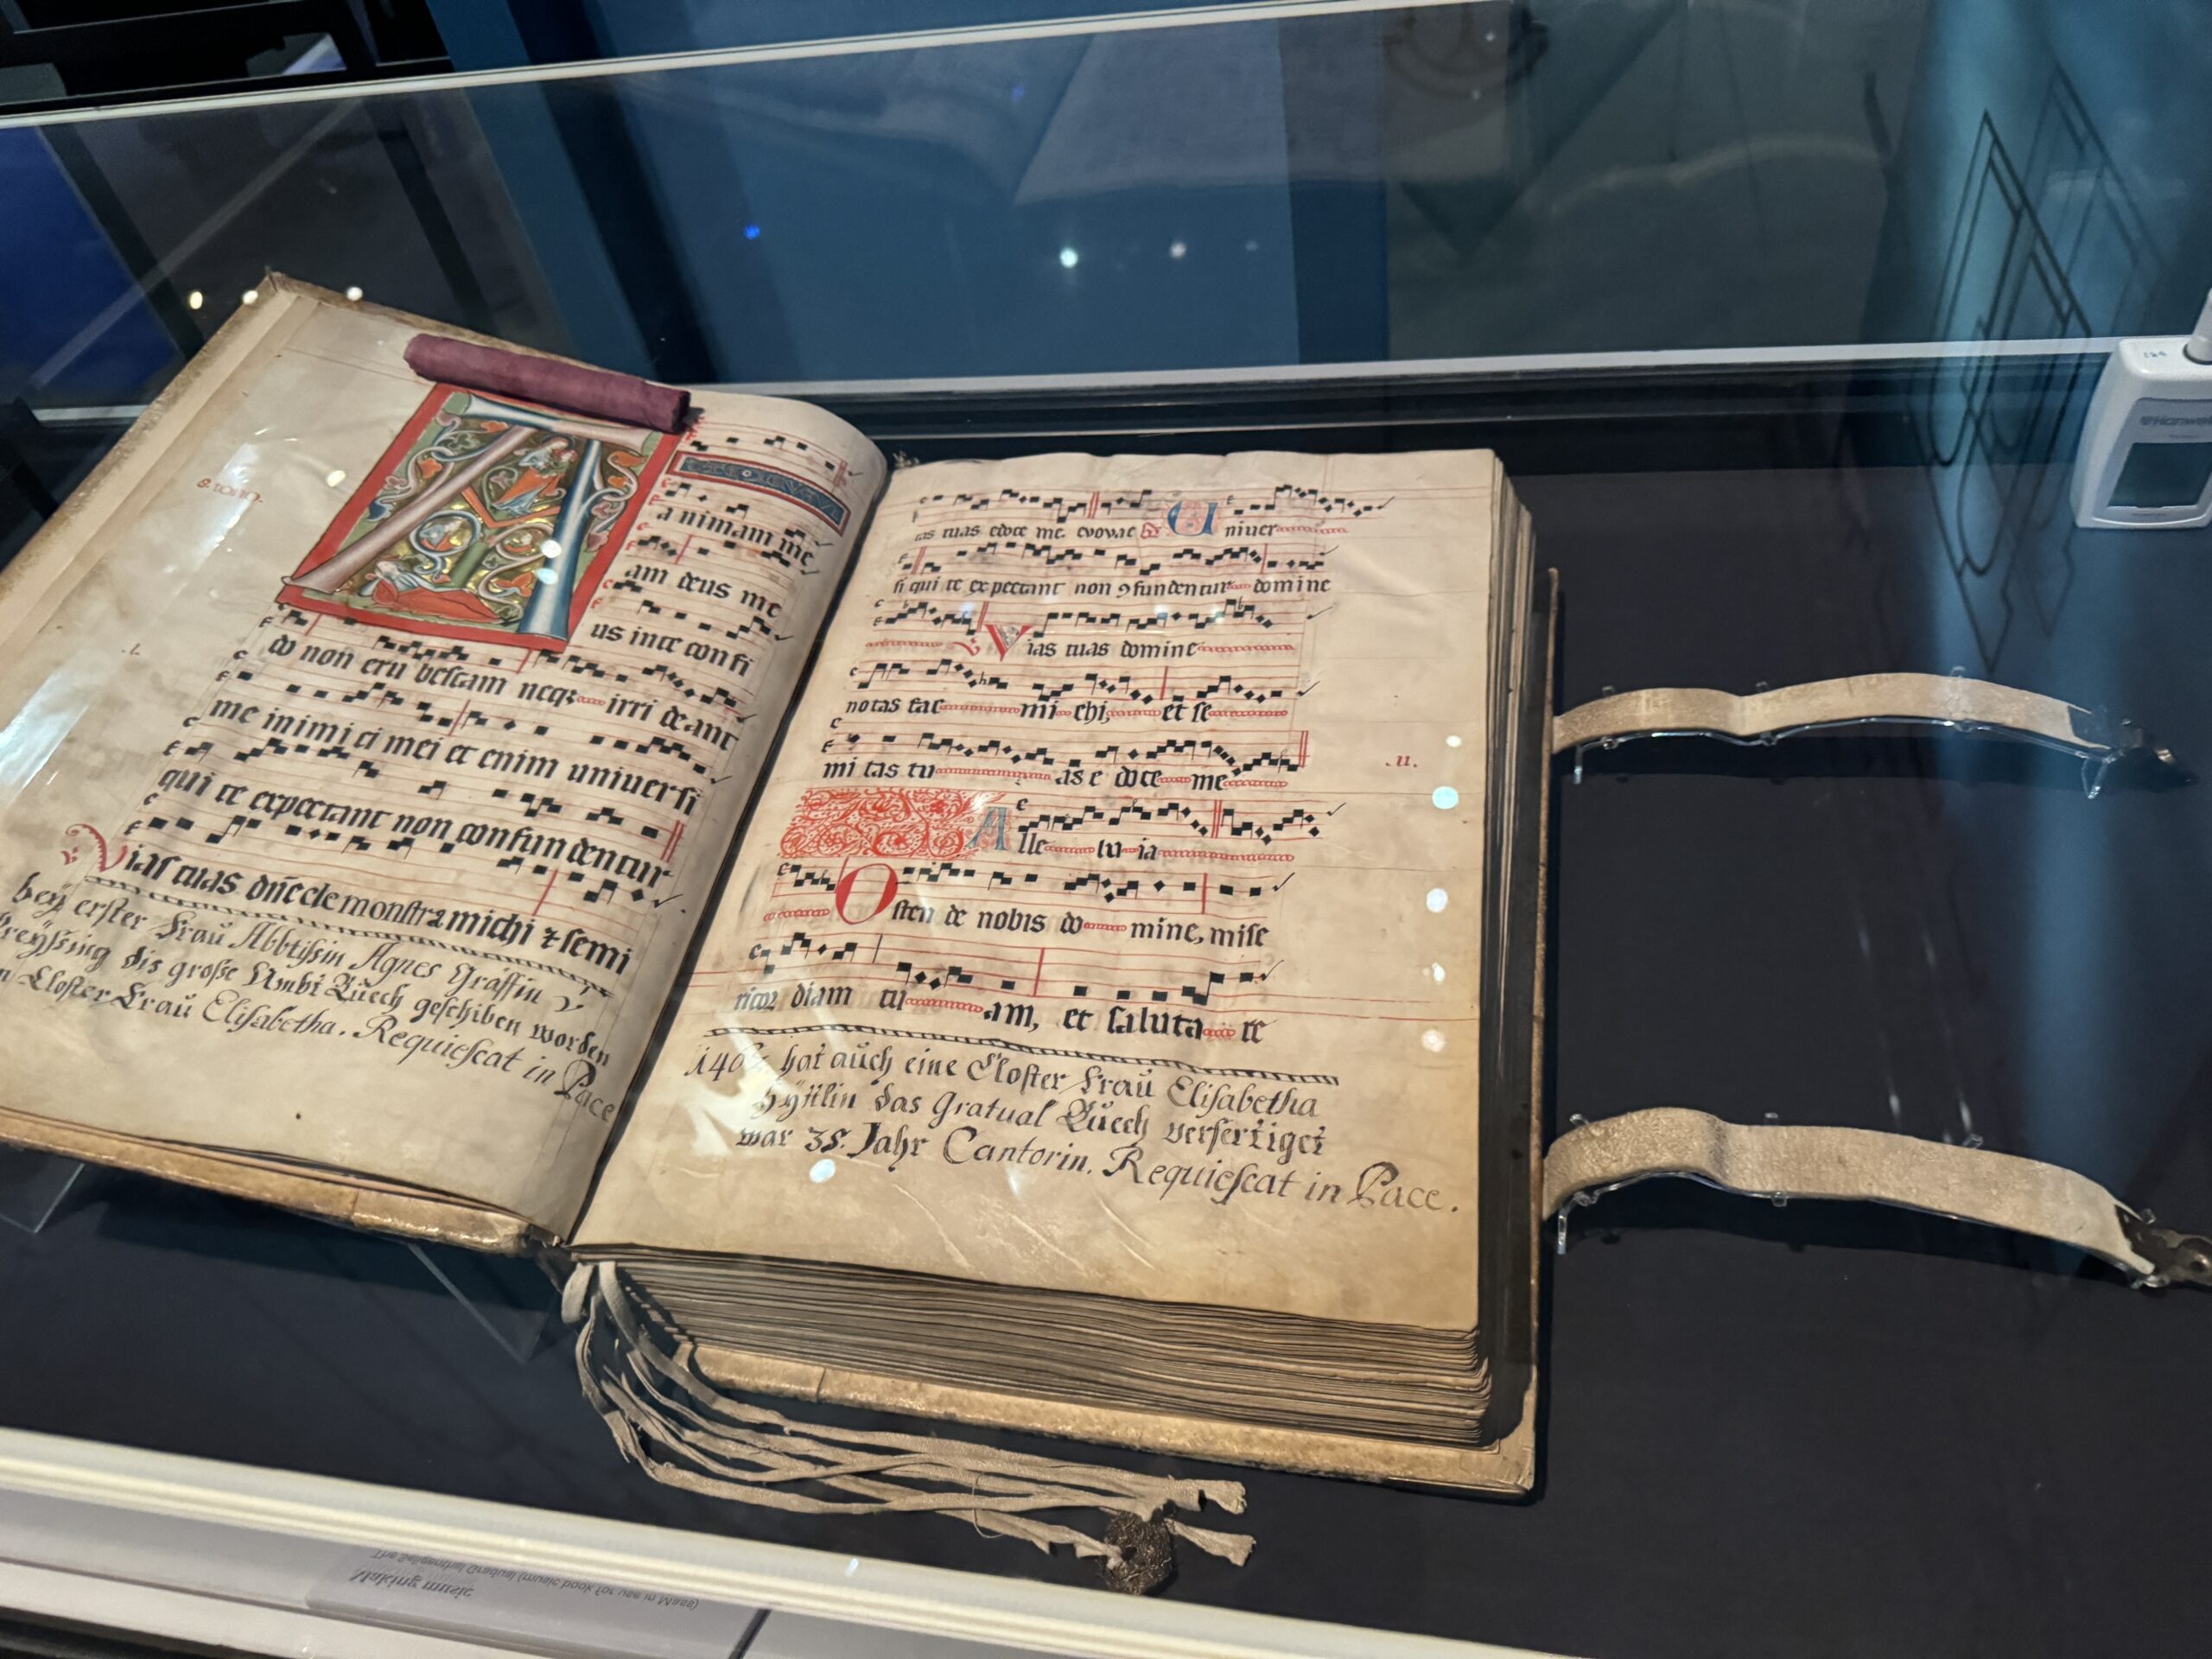 8. toni.
a nimam me
am deus me
us in te con fi
do non eru bescam neqꝫ irri de ant
me inimi ci mei et enim uniuersi
qui te expectant non confun dentur
℣ Vias tuas dn̄e demonstra michi ⁊ semi
bey erster Fraŭ Abbtißin Agnes Gräffin v
preÿssing dis große Ambt Bŭech geschiben worden
n Closter Fraŭ Elisabetha. Requiescat in
Pace
.I.
tas tuas edoce me. evovae Gr Uniuer
si qui te expectant non ꝯfundentur domine
℣ Vias tuas domine
notas fac mi chi, et se
mi tas tu as e doce me
.II.
Alle lu ia
Osten de nobis do mine, mise
ricor diam tu am, et saluta re
hat aŭch eine Closter Fraŭ Elisabetha
das Gratual Bŭech verfertiget
war 38. Jahr Cantorin. Requiescat in Pace.
Making music
The Seligenthal Gradual (music book for use in Mass)